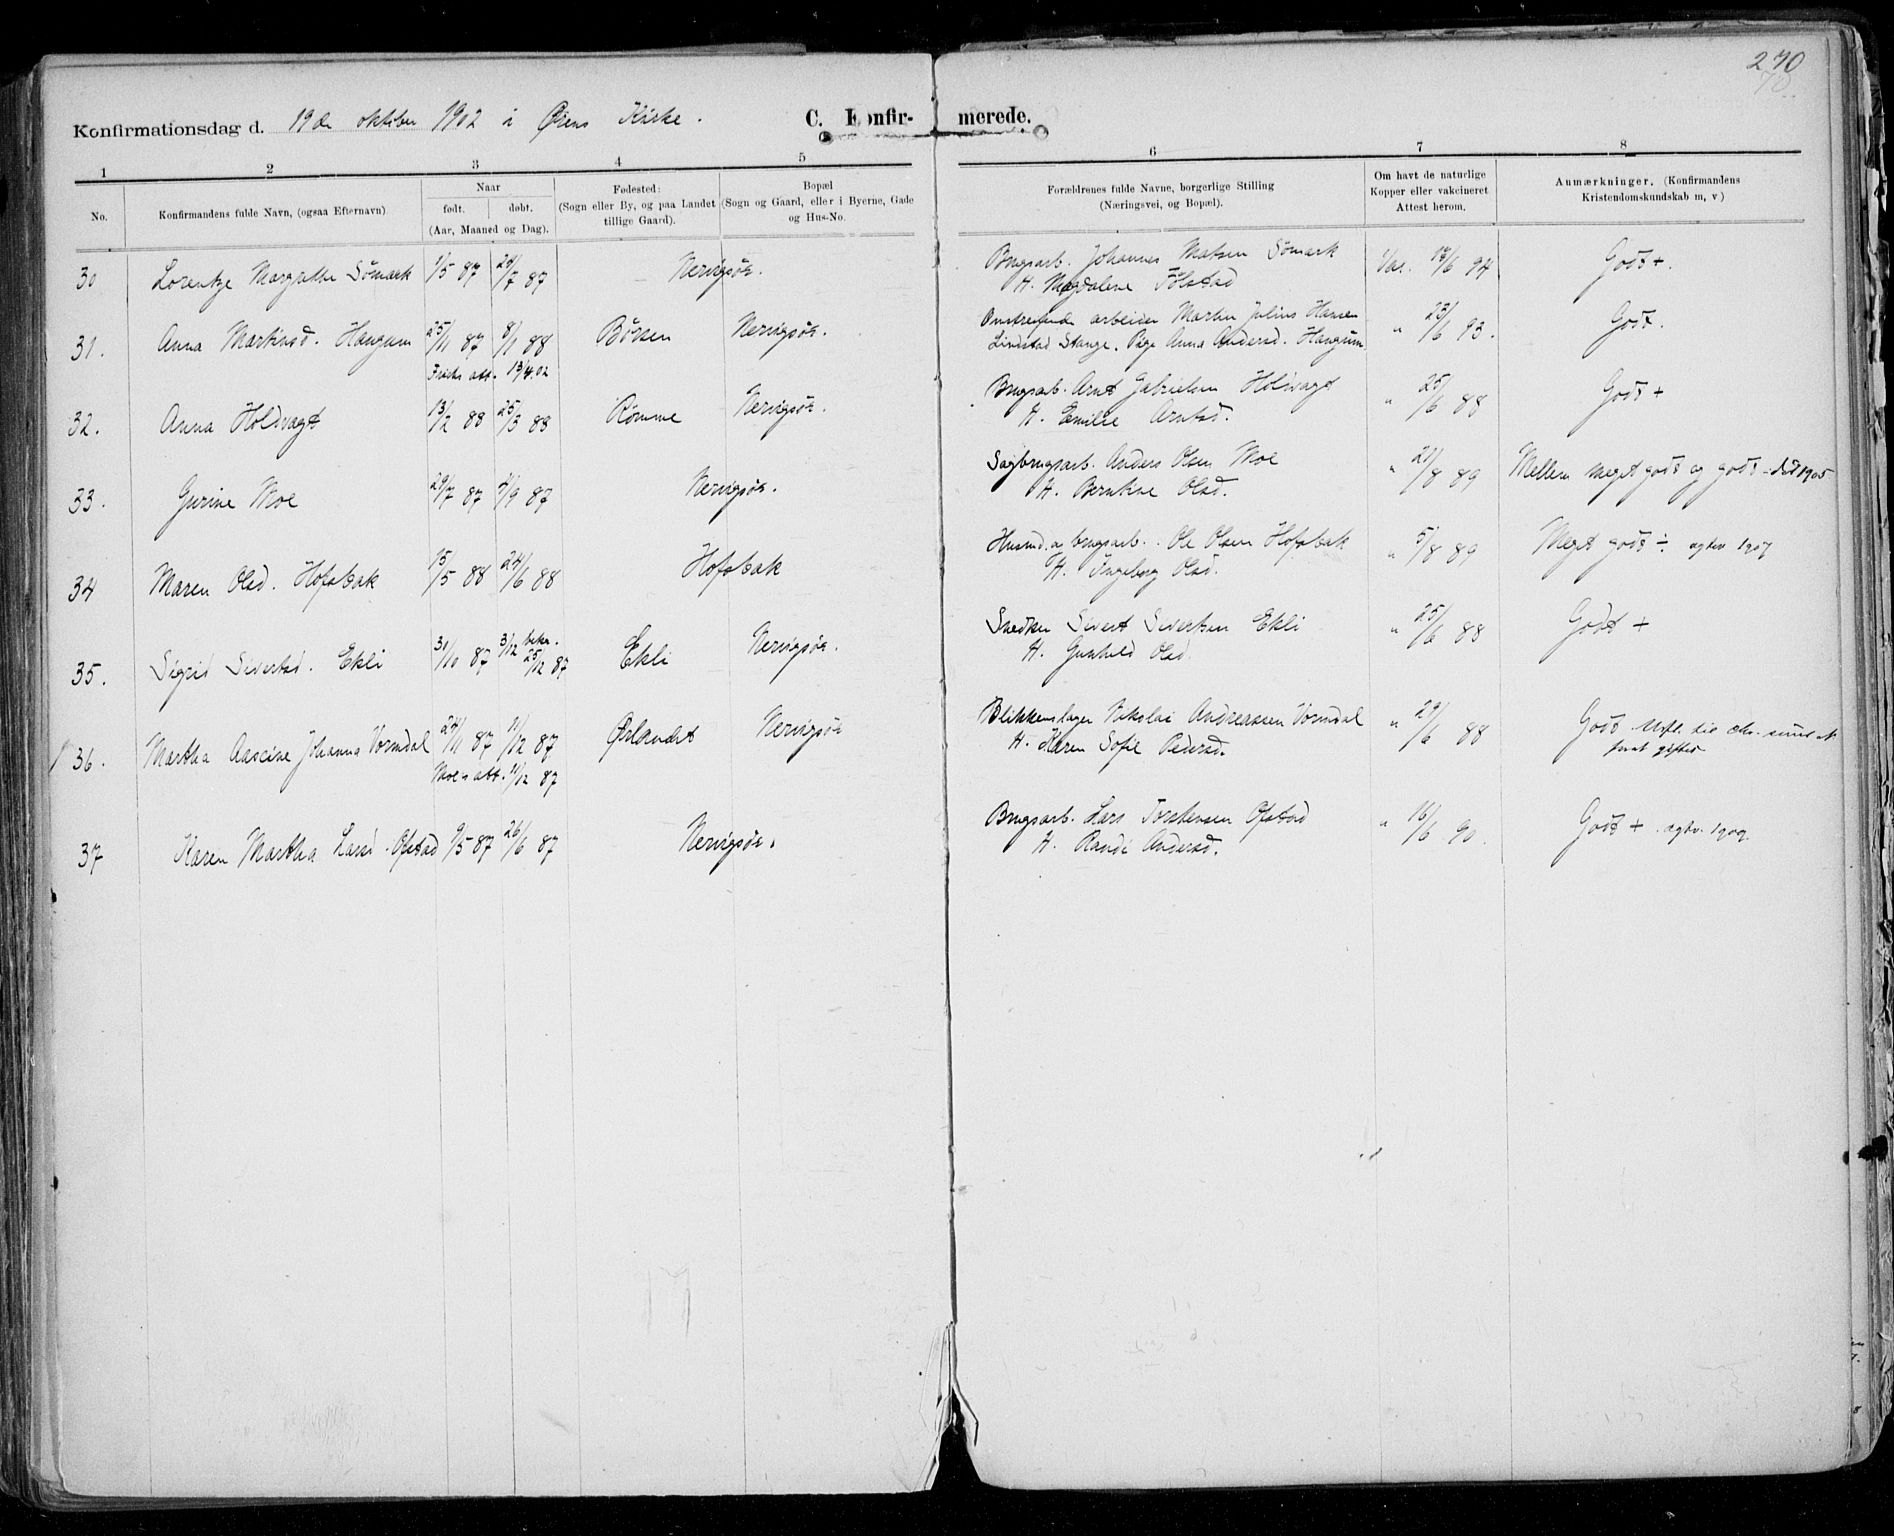 270
Konfirmationsdag d. 19de oktober 1902 i Ørens Kirke. C. Konfir- merede.
1 2 3 4 5 6 7 8
No. Konfirmandens fulde Navn, (ogsaa Efternavn). Naar født. døbt. (Aar, Maaned og Dag). Fødested: (Sogn eller By, og paa Landet tillige Gaard). Bopæl (Sogn og Gaard, eller i Byerne, Gade og Hus-No. Forældrenes fulde Navne, borgerlige Stilling (Næringsvei, og Bopæl). Om havt de naturlige Kopper eller vakcineret Attest herom. Anmærkninger. (Konfirmandens Kristendomskundskab m, v)
30 Lorentze Margrethe Sömark 1/5 87 24/7 87 Nervigsør. Brugsarb. Johannes Matsen Sömark Vac. 17/6 94 Godt +.
H. Magdalene Tölstad
31. Anna Martinsd. Haugum 25/11 87 8/1 88 Børsen Nervigsør. arbeider Martin Julius Hansen " 23/6 93. Godt.
att. 13/4 02 Lindstad Stange. Pige Anna Andersd. Haugum
32. Anna Holdvagt 13/2 88 25/3 88 Rømme Nervigsør. Brugsarb. Arnt Gabrielsen Holdvagt " 25/6 88 Godt +
H. Emilie Arntsd.
33. Gurine Moe 29/7 87 4/9 87 Nervigsør. Sagbrugsarb. Anders Olsen Moe " 21/8 89 Mellem meget godt og godt - död 1905
H. Berntine Olsd.
34 Maren Olsd. Hofsbak 15/5 88 24/6 88 Hofsbak Husmd. og brugsarb. Ole Olsen Hofsbak " 5/8 89 Meget godt ÷ 1907
H. Ingeborg Olsd.
35. Sigrid Sivertsd. Ekli 30/10 87 3/12 bekr. 25/12 87 Ekli Nervigsør. Snedker Sivert Sivertsen Ekli " 25/6 88 Godt +
H. Gunhild Olsd.
36. Martha Aasine Johanna Vormdal 24/11 87 11/12 87 Ørlandet Nervigsør Blikkenslager Nikolai Andreassen Vormdal " 29/6 88 Godt
Moes att. 11/12 87 H. Karen Sofie Pedersd. gifted
37 Karen Martha Larsd. Ofstad 9/5 87 26/6 87 Nervigsør. Brugsarb. Lars Torstensen Ofstad " 16/6 90. Godt + 1902
H. Randi Andersd.